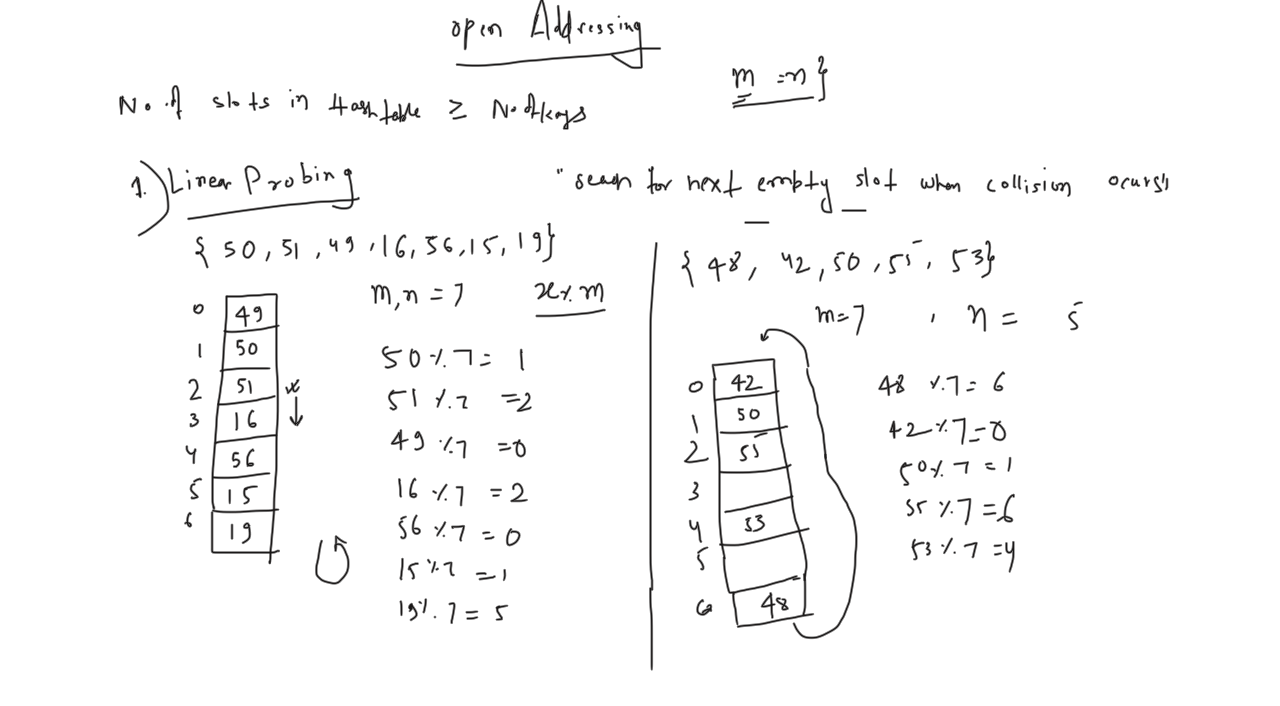 open Addressing
m =n}
No. of slots in Hash table ≥ No. of keys
1.) Linear Probing
"seach for next empty slot when collision ocurs"
{ 50, 51, 49, 16, 56, 15, 19}
m, n = 7
x % m
0 49
1 50
2 51
3 16
4 56
5 15
6 19
50 % 7 = 1
51 % 7 = 2
49 % 7 = 0
16 % 7 = 2
56 % 7 = 0
15 % 7 = 1
19 % 7 = 5
{ 48, 42, 50, 55, 53}
m = 7 , n = 5
0 42
1 50
2 55
3
4 53
5
6 48
48 % 7 = 6
42 % 7 = 0
50 % 7 = 1
55 % 7 = 6
53 % 7 = 4